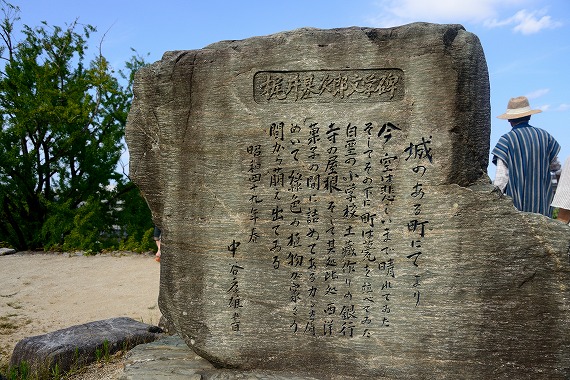 梶井基次郎文学碑
城のある町にて より
今、空は悲しいまで晴れてゐた
そしてその下に町は甍を並べてゐた
白堊の小学校 土蔵作りの銀行
寺の屋根 そして其処此処 西洋
菓子の間に詰めてあるカンナ屑
めいて 緑色の植物が家々の
間から萌え出てゐる
昭和四十九年 春
中谷孝雄 書